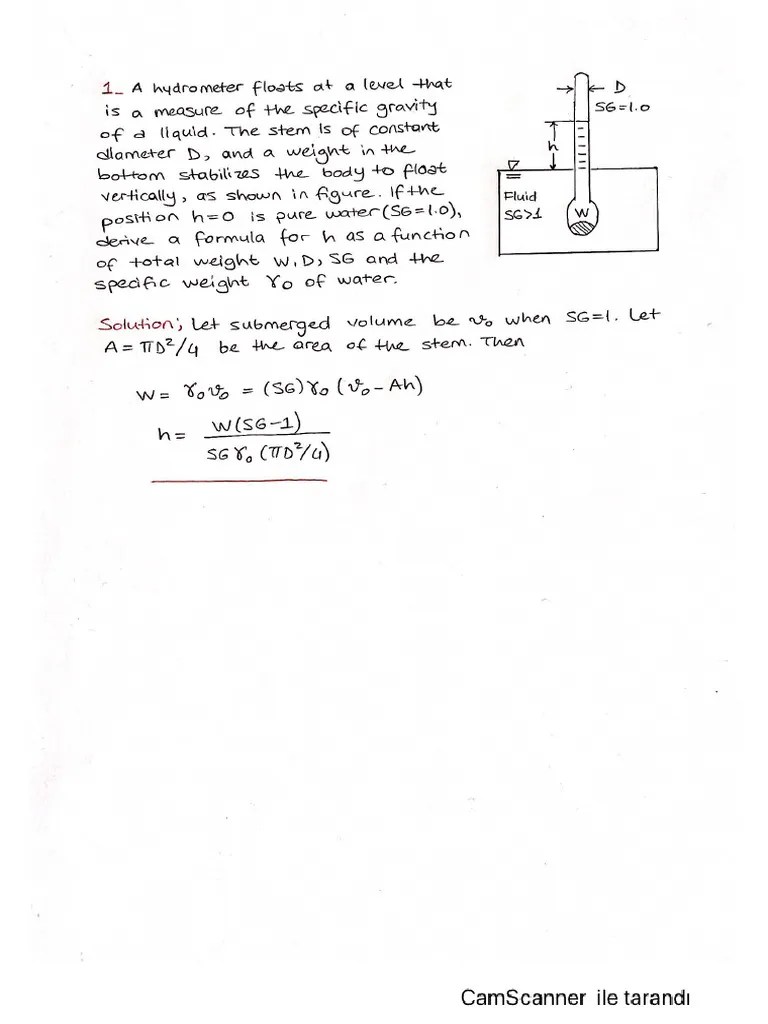 1_ A hydrometer floats at a level that
is a measure of the specific gravity
of a liquid. The stem is of constant
diameter D, and a weight in the
bottom stabilizes the body to float
vertically, as shown in figure. If the
position h=0 is pure water (SG=1.0),
derive a formula for h as a function
of total weight W, D, SG and the
specific weight γ0 of water.
D
SG=1.0
h
Fluid
SG>1
W
Solution; Let submerged volume be v0 when SG=1. Let
A = πD²/4 be the area of the stem. Then
W = γ0v0 = (SG)γ0 (v0 - Ah)
h = W(SG-1) / SG γ0 (πD²/4)
CamScanner ile tarandı